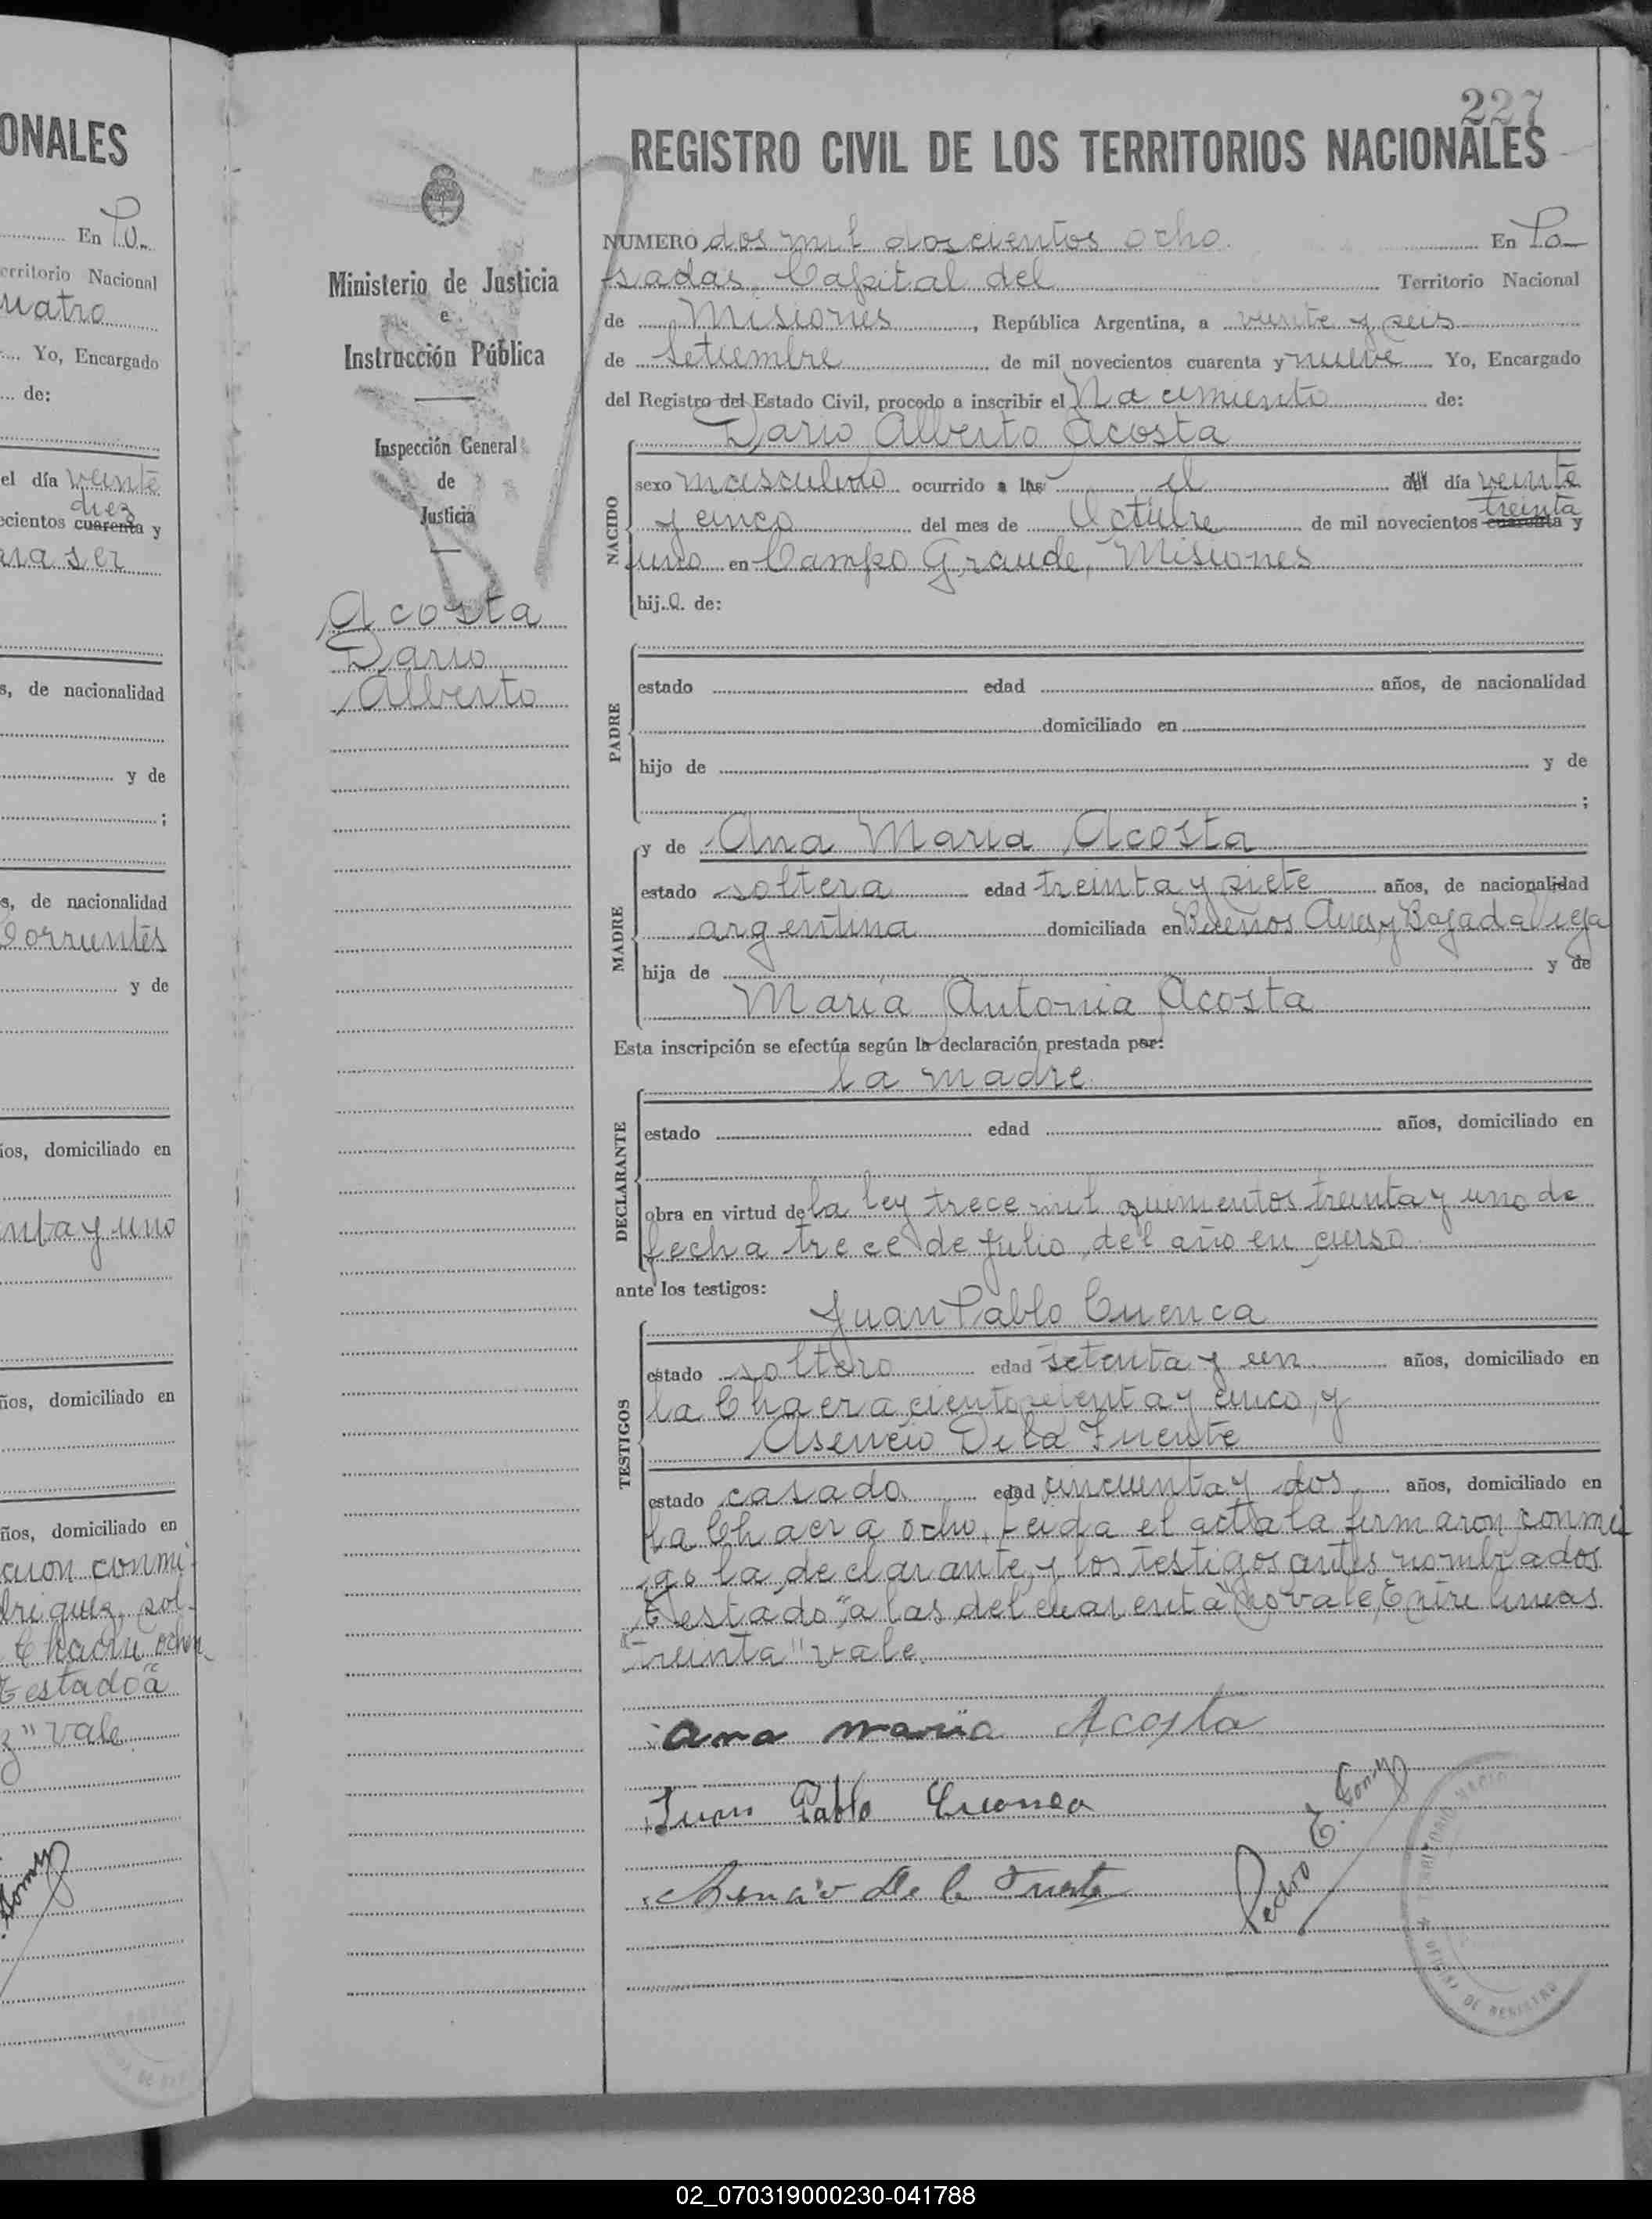 ONALES
En Po
erritorio Nacional
uatro
Yo, Encargado
de:
el día veinte
diez
ecientos cuarenta y
ara ser
s, de nacionalidad
y de
;
s, de nacionalidad
Corrientes
y de
ios, domiciliado en
nta y uno
ños, domiciliado en
ños, domiciliado en
aron conmi
driguez, sol-
Chacra ochen
Testado "a
z" vale
Ministerio de Justicia
e
Instrucción Pública
Inspección General
de
Justicia
Acosta
Dario
Alberto
227
REGISTRO CIVIL DE LOS TERRITORIOS NACIONALES
NUMERO dos mil doscientos ocho En Po-
sadas, Capital del Territorio Nacional
de Misiones, República Argentina, a veinte y seis
de Setiembre de mil novecientos cuarenta y nueve Yo, Encargado
del Registro del Estado Civil, procedo a inscribir el Nacimiento de:
Dario Alberto Acosta
NACIDO
sexo masculino ocurrido a las el del día veinte
treinta
y cinco del mes de Octubre de mil novecientos cuarenta y
uno en Campo Grande, Misiones
hij.o. de:
PADRE
estado edad años, de nacionalidad
domiciliado en
hijo de y de
;
MADRE
y de Ana Maria Acosta
estado soltera edad treinta y siete años, de nacionalidad
argentina domiciliada en Buenos Aires y Bajada Vieja
hija de y de
Maria Antonia Acosta
Esta inscripción se efectúa según la declaración prestada por:
la madre
DECLARANTE
estado edad años, domiciliado en
obra en virtud de la ley trece mil quinientos treinta y uno de
fecha trece de Julio del año en curso
ante los testigos:
Juan Pablo Cuenca
TESTIGOS
estado soltero edad setenta y un años, domiciliado en
la Chacra ciento setenta y cinco, y
Asencio De la Fuente
estado casado edad cincuenta y dos años, domiciliado en
la Chacra ocho. Leida el acta la firmaron conmi
go la declarante, y los testigos antes nombrados
Testado "a las del cuarenta" no vale, Entre lineas
"treinta" vale.
ana maria Acosta
Juan Pablo Cuenca
Asencio De la Fuente
Pedro E.
OFICINA DE REGISTRO
02_070319000230-041788